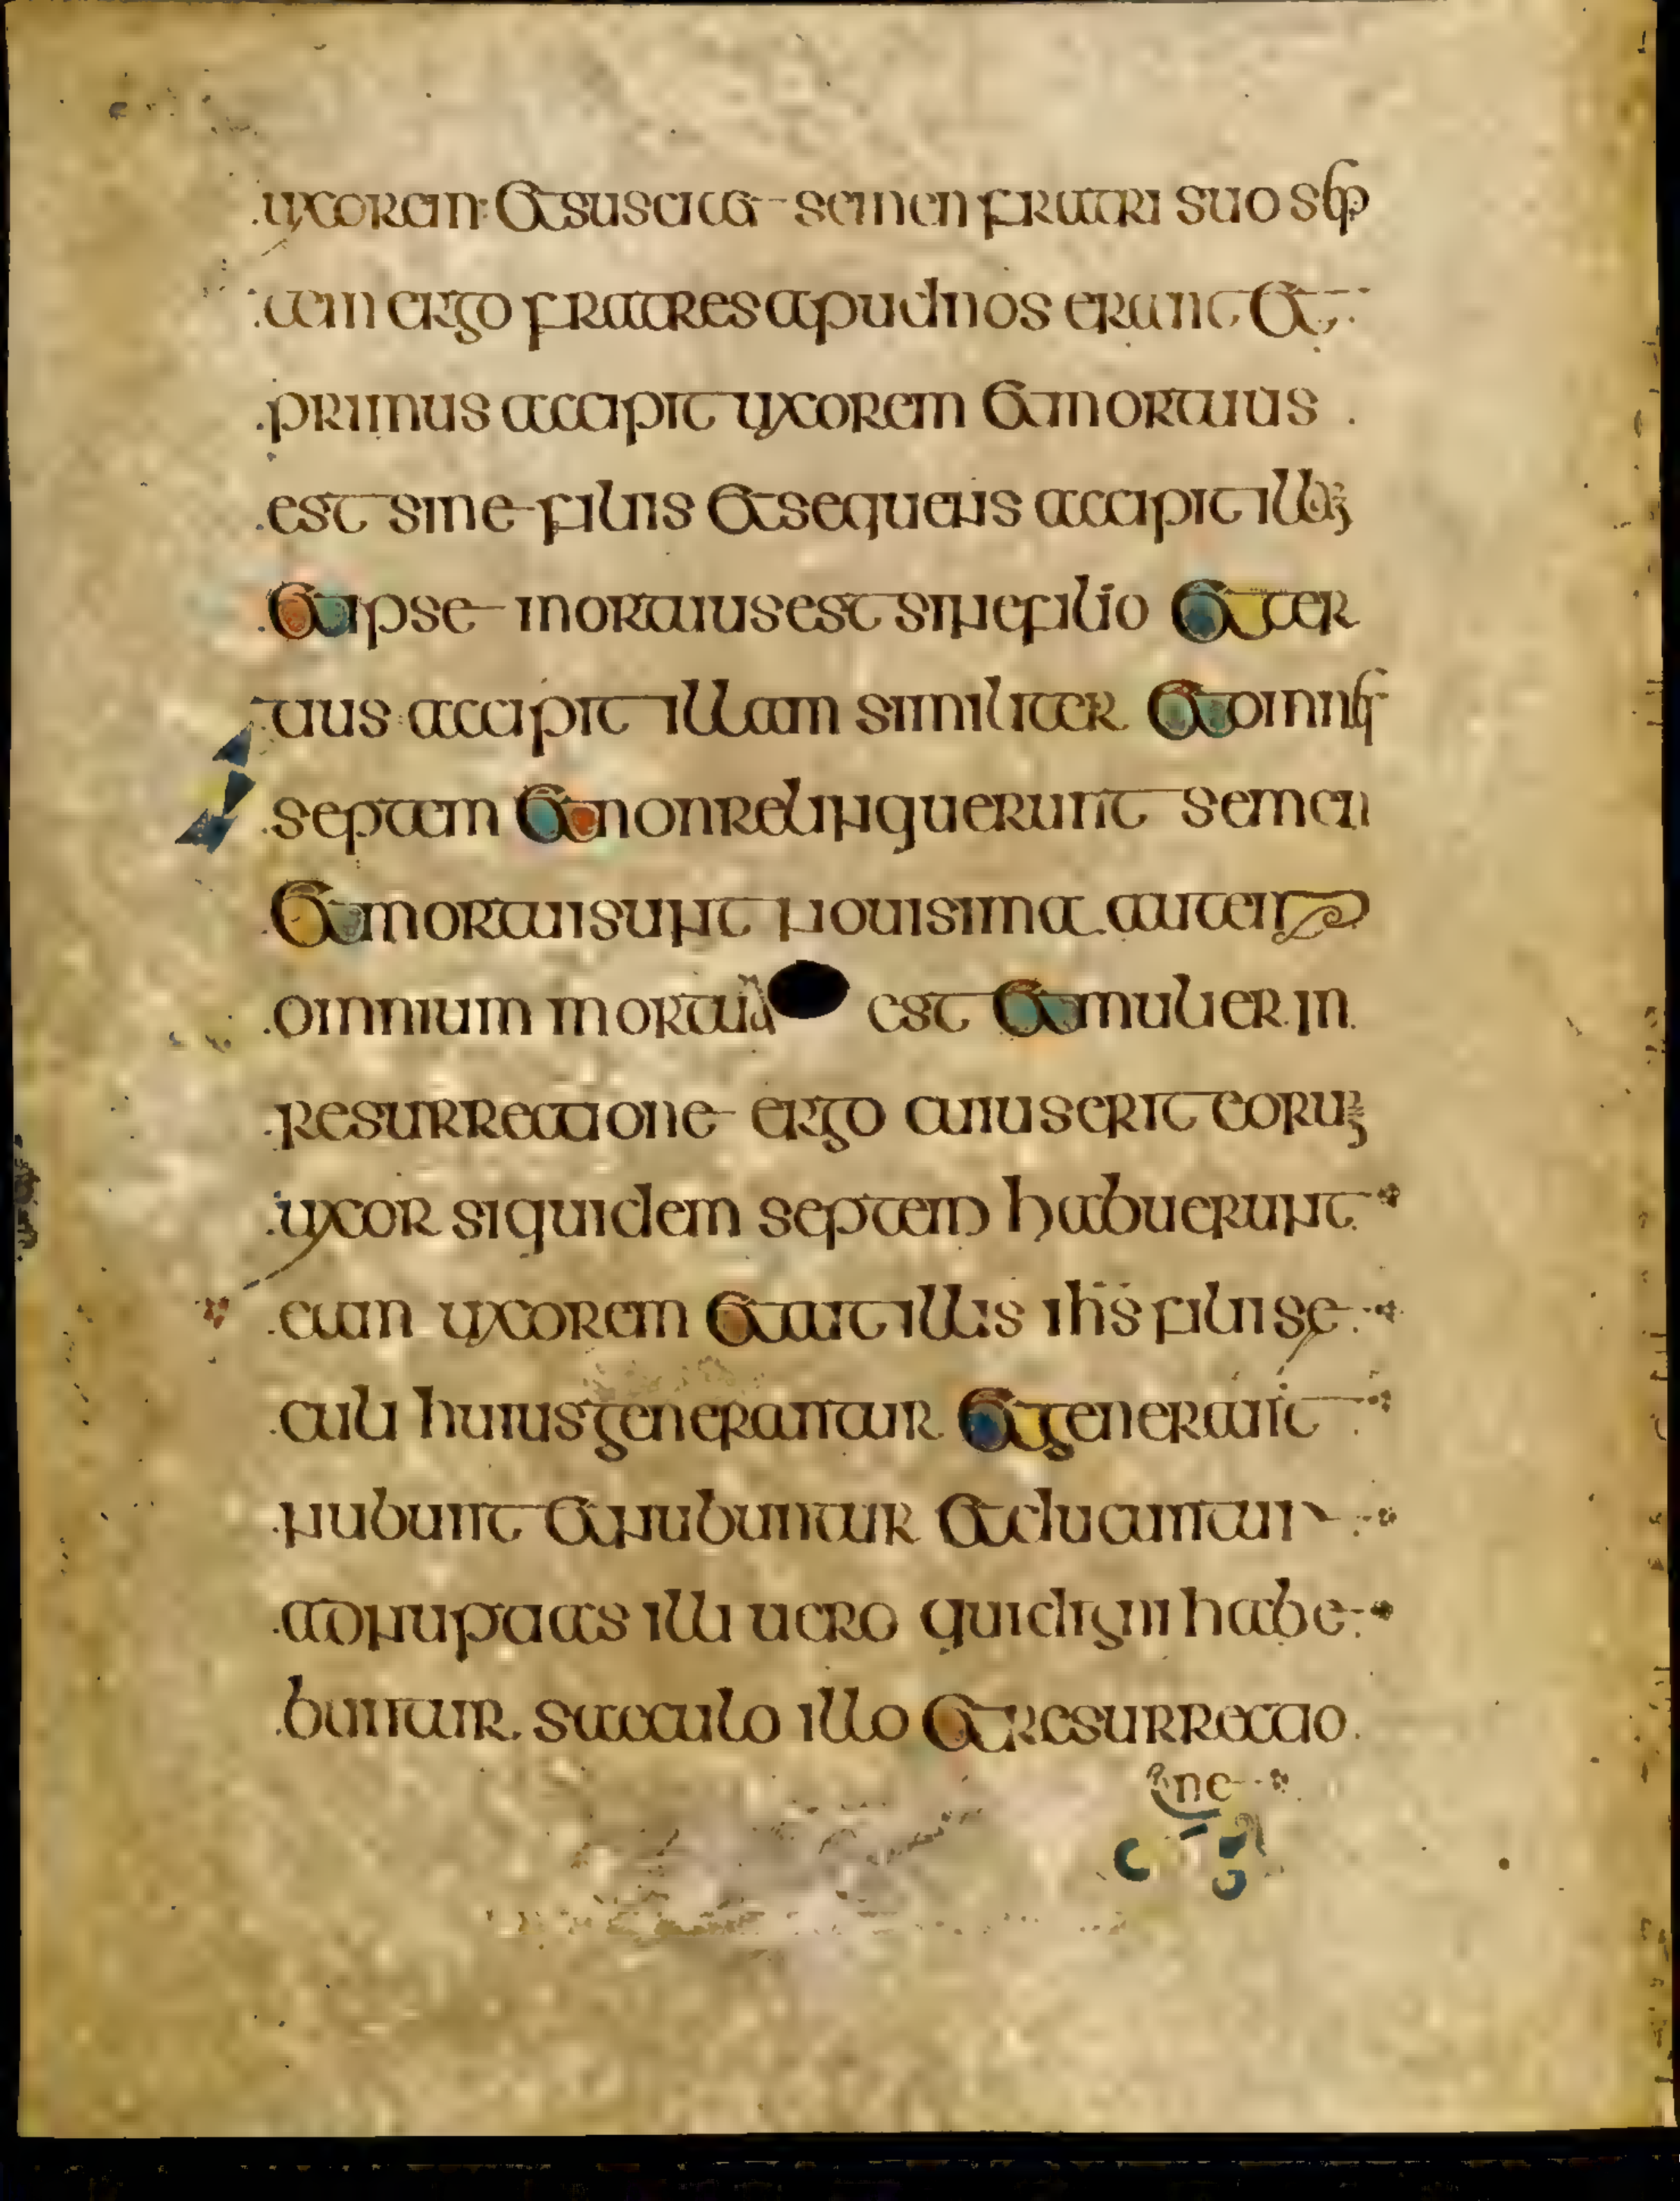 uxorem et suscitet semen fratri suo sep
tem ergo fratres apud nos erant et
primus accipit uxorem et mortuus
est sine filiis et sequens accipit illã
et ipse mortuus est sine filio et ter
tius accipit illam similiter et omnes
septem et non relinquerunt semen
et mortui sunt nouisima autem
omnium mortua est et mulier in
resurrectione ergo cuius erit eorũ
uxor siquidem septem habuerunt
eam uxorem et ait illis ihs filii se
culi huius generantur et generant
nubunt et nubuntur et ducuntur
ad nuptias illi uero qui digni habe
buntur saeculo illo et resurrectio
ne